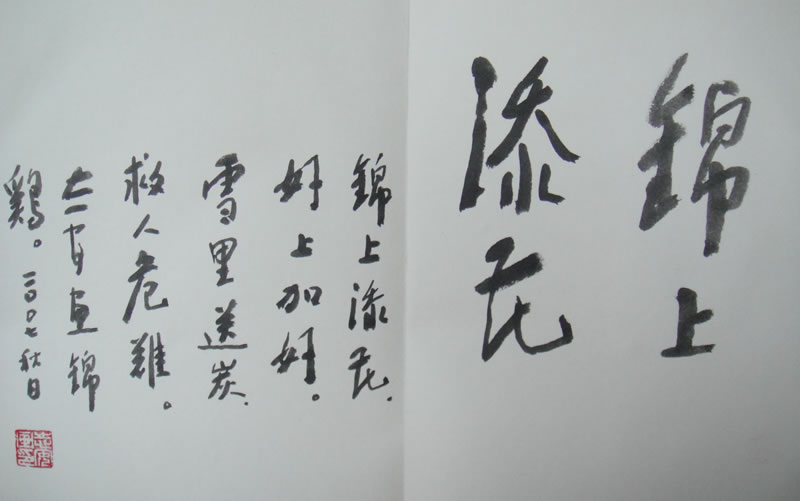 錦上
添花
錦上添花.
好上加好。
雪里送炭.
救人危難。
画錦
鷄。二〇〇七秋日